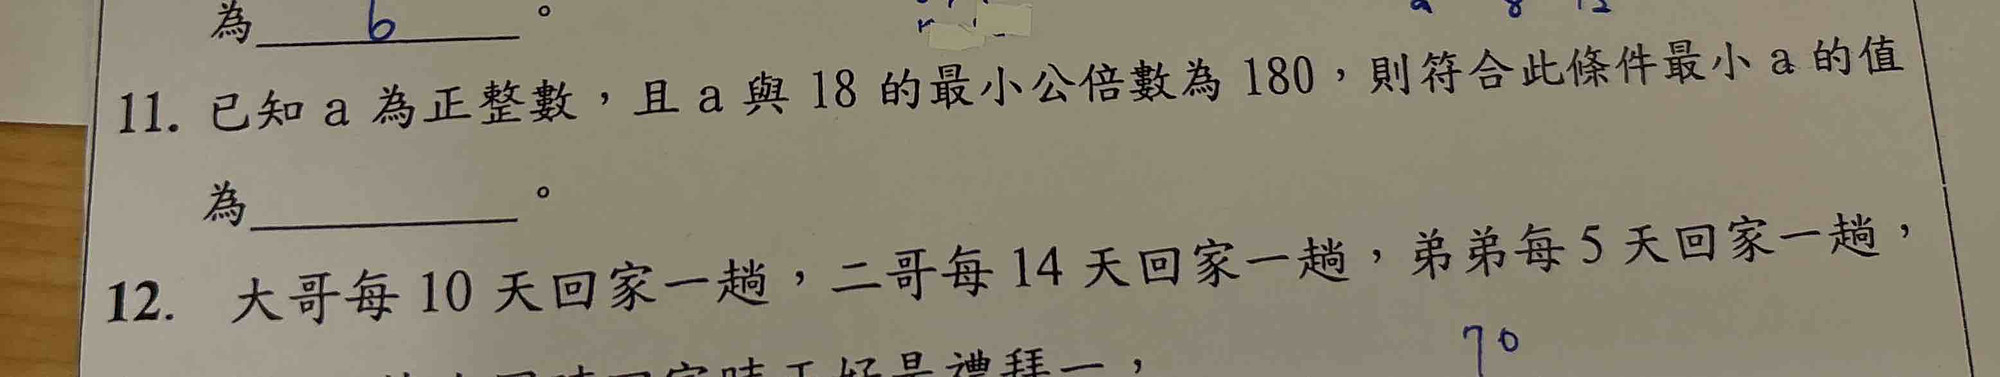 為 6 。
11. 已知 a 為正整數，且 a 與 18 的最小公倍數為 180，則符合此條件最小 a 的值
為＿＿＿＿＿。
12. 大哥每 10 天回家一趟，二哥每 14 天回家一趟，弟弟每 5 天回家一趟，
70
正好是禮拜一，